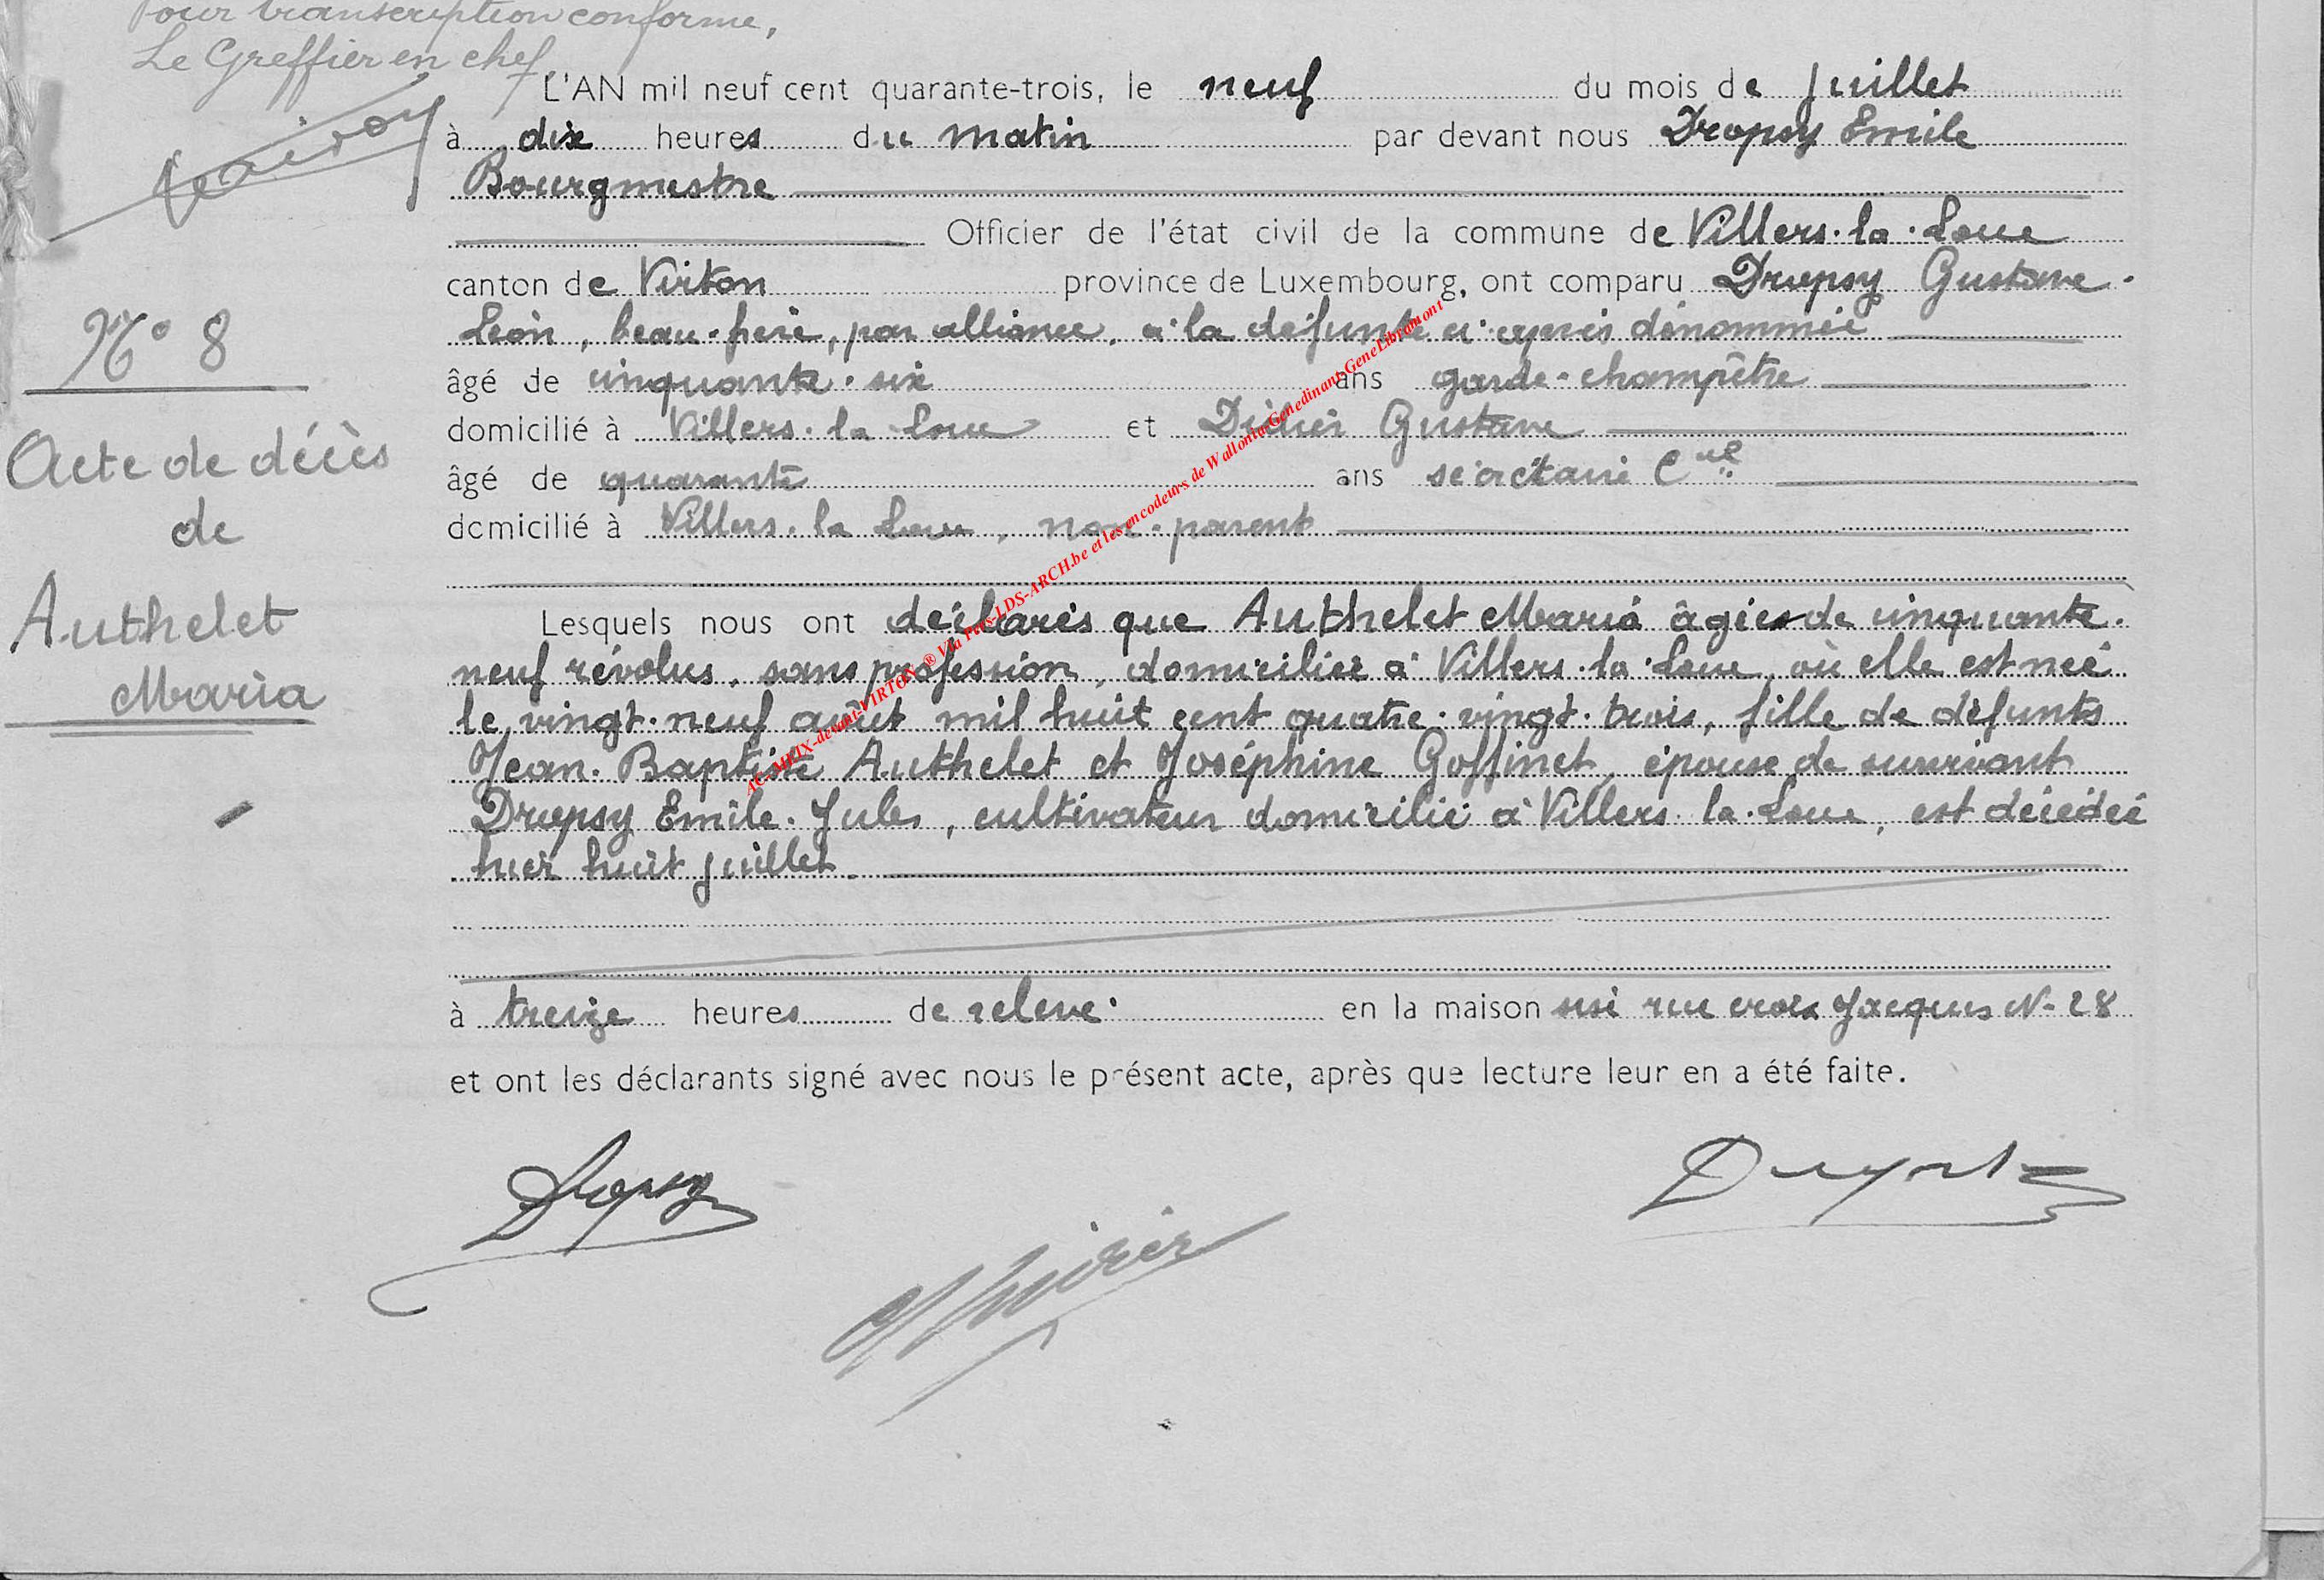 Pour transcription conforme,
Le Greffier en chef,
L'AN mil neuf cent quarante-trois, le neuf du mois de Juillet
à dix heures du matin par devant nous Dropsy Emile
Bourgmestre
Officier de l'état civil de la commune de Villers-la-Loue
canton de Virton province de Luxembourg, ont comparu Dropsy Gustave-
Léon, beau-frère, par alliance, à la défunte ci-après dénommée
âgé de cinquante-six ans garde-champêtre
domicilié à Villers-la-Loue et Didier Gustave
âgé de quarante ans secrétaire Cnal
domicilié à Villers-la-Loue, non-parent
N° 8
Acte de décès
de
Authelet
Maria
Lesquels nous ont déclarés que Authelet Maria âgée de cinquante-
neuf révolus, sans profession, domiciliée à Villers-la-Loue, où elle est née
le vingt-neuf août mil huit cent quatre-vingt-trois, fille de défunts
Jean-Baptiste Authelet et Joséphine Goffinet, épouse de survivant
Dropsy Emile-Jules, cultivateur domicilié à Villers-la-Loue, est décédée
hier huit juillet.
à treize heures de relevé en la maison sise rue croix Jacques N° 28
et ont les déclarants signé avec nous le présent acte, après que lecture leur en a été faite.
Dropsy
Didier
AC-MEIX-devant-VIRTON ® Via Pres-LDS-ARCH.be et les encodeurs de Wallonia-Genedinant-GeneLibramont